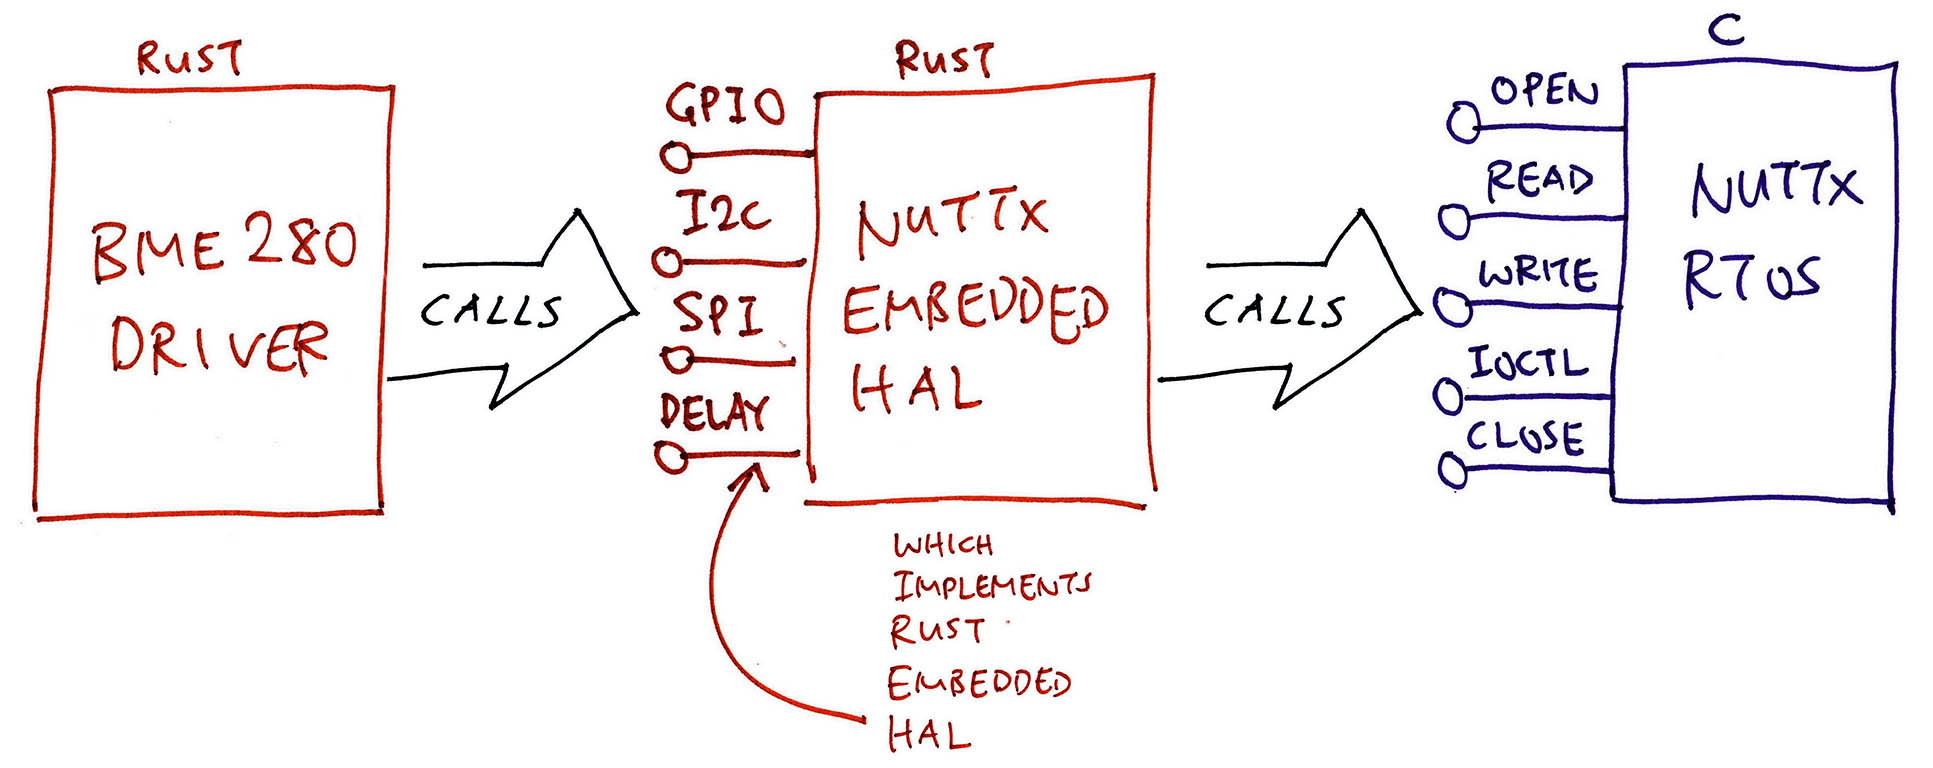 RUST
BME280
DRIVER
CALLS
RUST
GPIO
I2C
SPI
DELAY
NUTTX
EMBEDDED
HAL
WHICH
IMPLEMENTS
RUST
EMBEDDED
HAL
CALLS
C
OPEN
READ
WRITE
IOCTL
CLOSE
NUTTX
RTOS